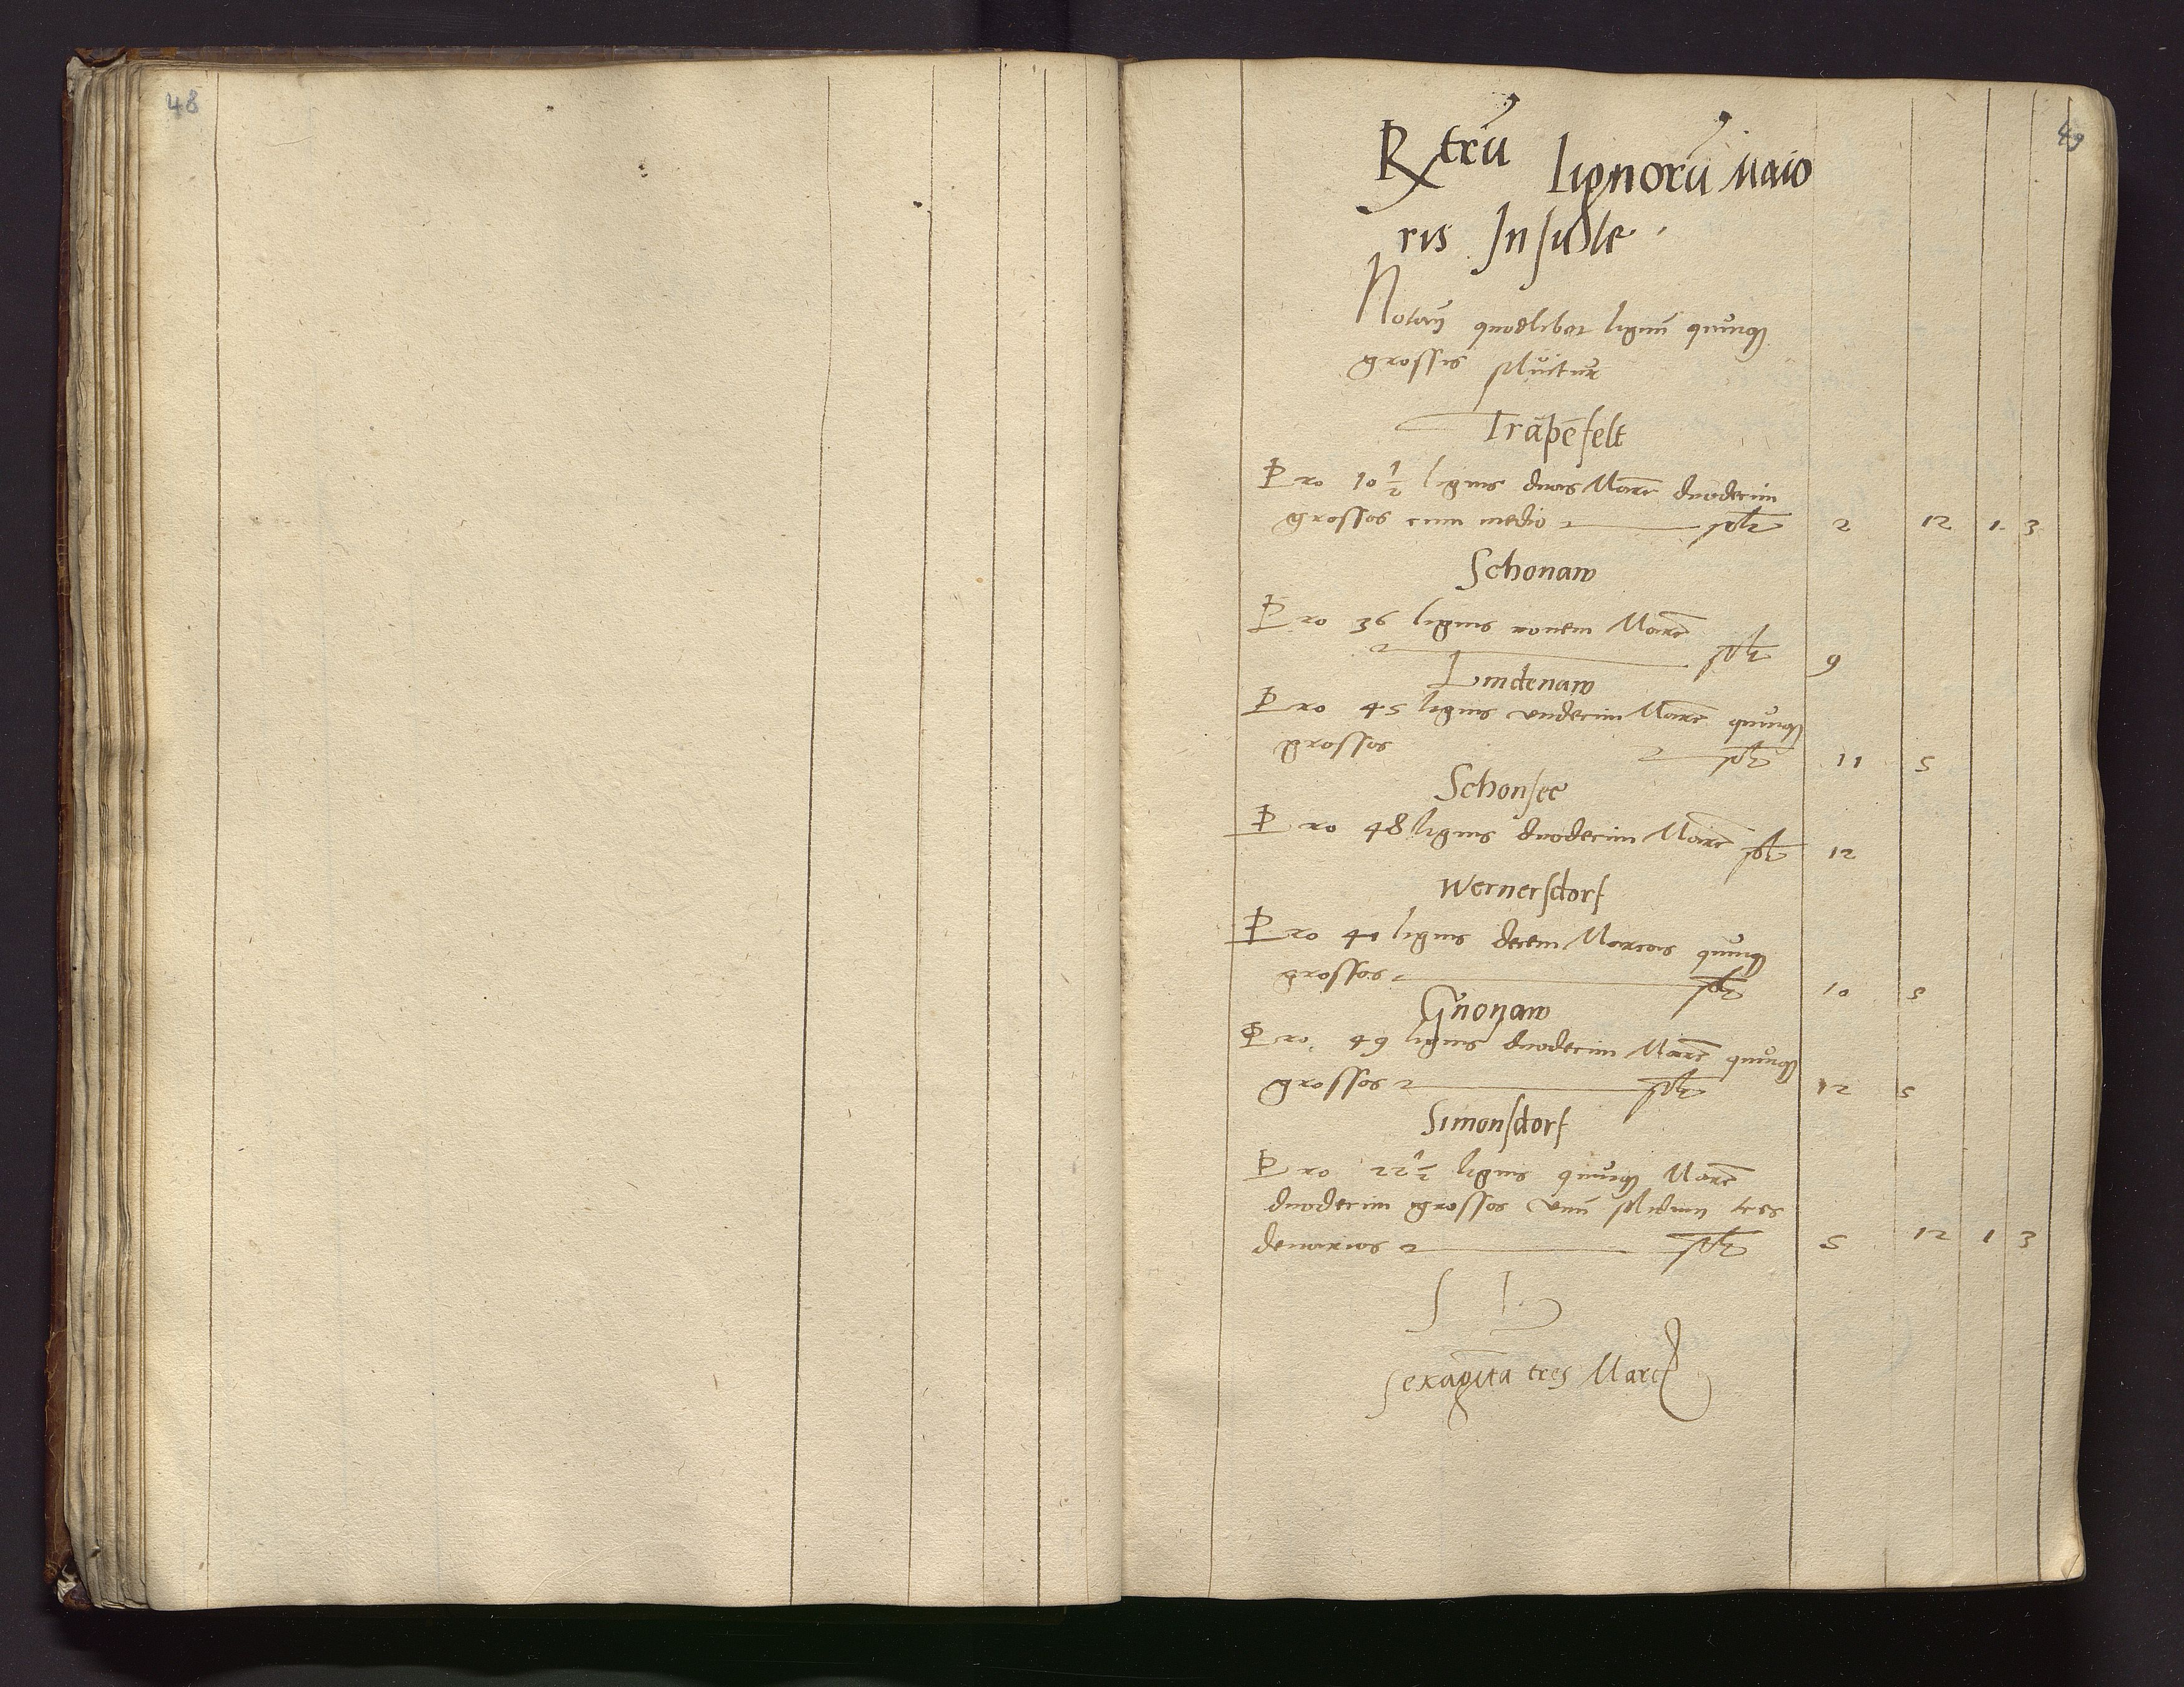 48
49
Rx trū lignorū Maio
ris Insule .
Notan̄ quodlibet lignū quinqȝ
grossis soluitur
Trāpēfelt
Pro 10 1/2 lignis duas Marc̄ duodecim
grossos cum medio solt 2 12 1 3
Schonaw
Pro 36 lignis nouem Marc̄
solt 9
Lindenaw
Pro 45 lignis vndecim Marc̄ quinqȝ
grossos solt 11 5
Schonsee
Pro 48 lignis duodecim Marc̄ solt 12
Wernersdorf
Pro 41 lignis decem Marcas quinqȝ
grossos solt 10 5
Gnoyaw
Pro 49 lignis duodecim Marc̄ quinqȝ
grossos solt 12 5
Simonsdorf
Pro 22 1/2 lignis quinqȝ Marc̄
duodecim grossos vnū solidum tres
denarios solt 5 12 1 3
S L
sexagīta tres Marc